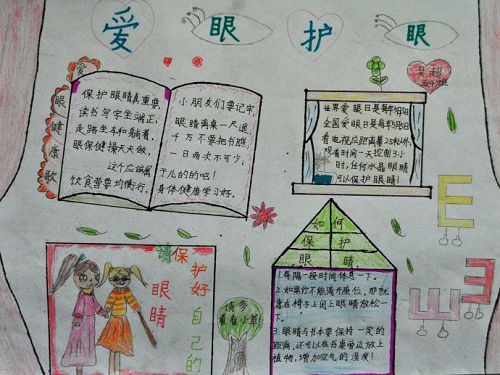 爱 眼 护 眼
爱眼健康歌
保护眼睛真重要,
读书写字坐端正,
走路坐车和躺着,
眼保健操天天做,
这个应该
饮食营
小朋友们要记牢,
眼睛离桌一尺远
千万不要把书瞧,
一日两次不可少,
身体健康学习好。
世界爱眼日是每年
全国爱眼日是每年
看电视应距离
观看时间一天控制3小
时,任何水晶眼睛
可以保护眼睛!
吴超
请保护好自己的
眼睛
请多
看看小草!
如何
保护
眼睛
1.每隔一段时间休息一下。
2.如果你不能离开座位,那就
靠在椅子上闭上眼睛放松一
下。
3.眼睛与书本要保持一定的
距离,还可以在书桌旁边放上
植物,增加空气的湿度!
E
E
E